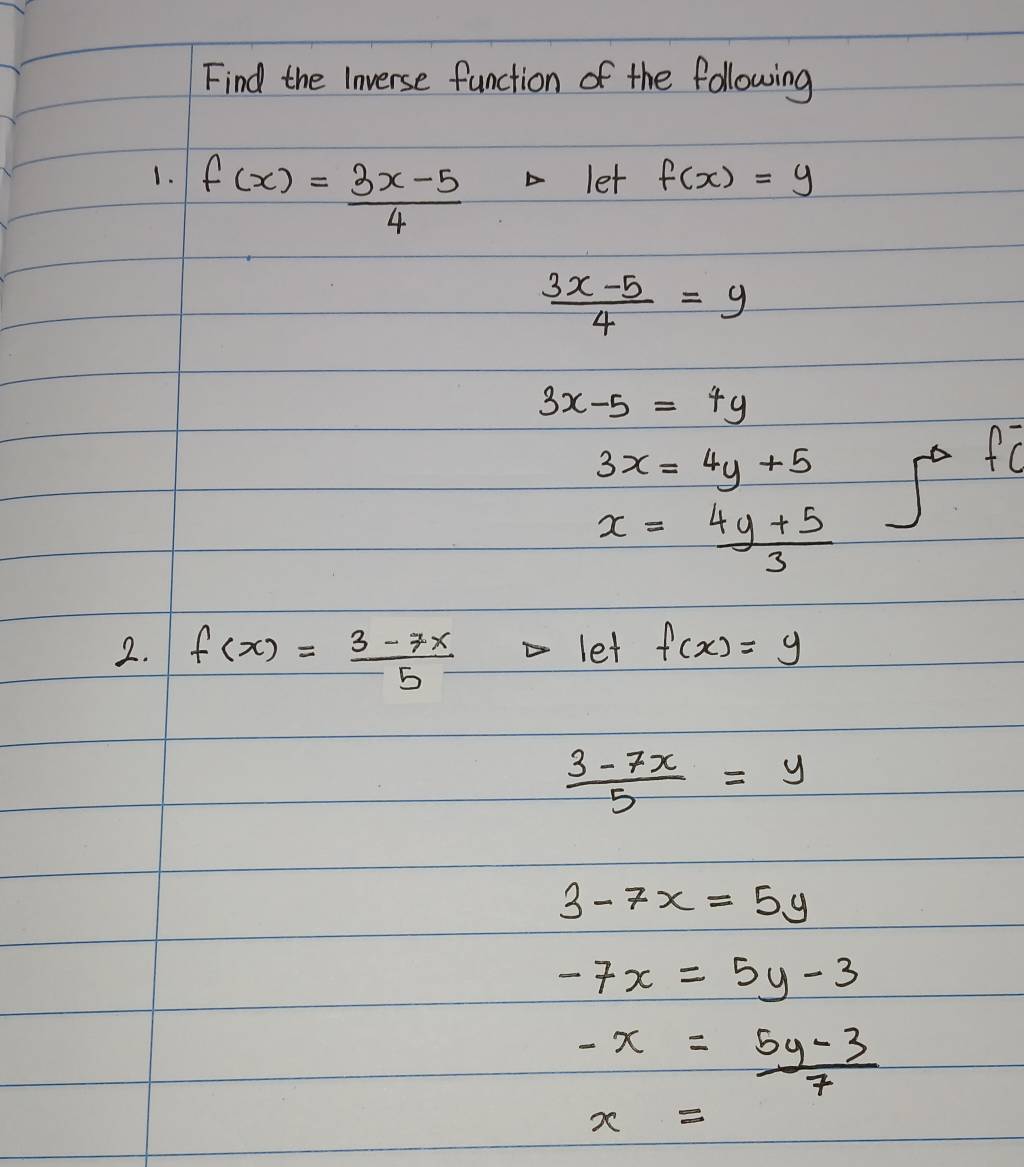 Find the Inverse function of the following
1. f(x) = 3x-5/4 ▷ let f(x) = y
3x-5/4 = y
3x-5 = 4y
3x = 4y +5
x = 4y+5/3
2. f(x) = 3-7x/5 ▷ let f(x) = y
3-7x/5 = y
3-7x = 5y
-7x = 5y-3
-x = 5y-3/7
x =